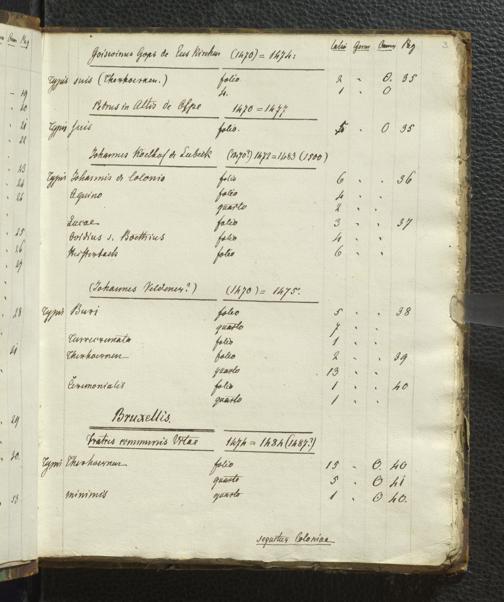 Goiswinus Gops de Eus Kirchen (1470) = 1474: Latin Germ Pag 3
Typis suis (Therhoernen.) folio 2 - 0. 35
4. 1 - 0
Petrus in Altis de Olpe 1470 = 1477
Typis suis folio. 5 - 0 35
Johannes Koelhof de Lubeck (1470?) 1472 = 1483 (1500)
Typis Johannis de Colonia folio 6 - - 36
Aquino folio 4 - -
quarto 2 - -
Lucae folio 3 - - 37
Ovidius s. Boethius folio 4 - -
Heisterbach folio 6 - -
(Johannes Veldener?) (1470) = 1475.
Typis Buri folio 5 - - 38
quarto 7 - -
Turrecremata folio 1 - -
Therhoernen folio 2 - - 39
quarto 13 - -
Ceremonialis folio 1 - - 40
quarto 1 - -
Bruxellis.
Fratres communis Vitae 1474 = 1484 (1487?)
Typis Therhoernen folio 15 - 0 40
quarto 5 - 0 41
minimis quarto 1 - 0 40.
sequitur Coloniae